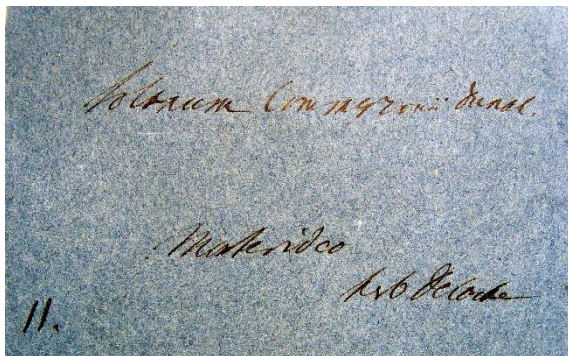 Solanum Commersonii Dunal.
Montevideo
herb
11.